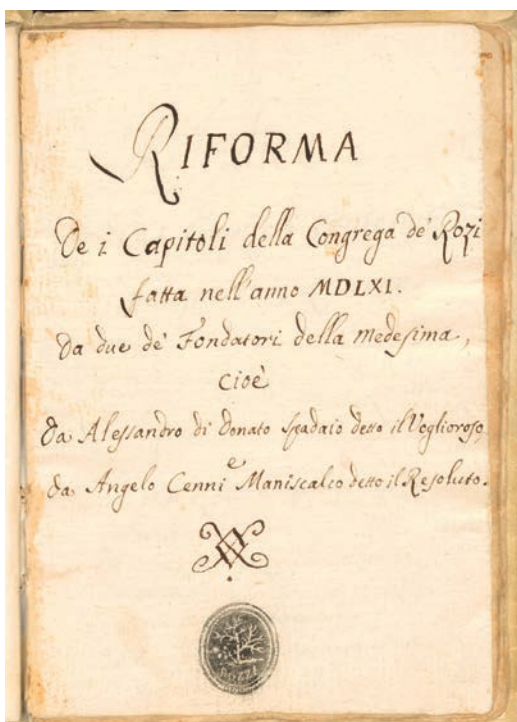 RIFORMA
De i Capitoli della Congrega de' Rozi
fatta nell'anno MDLXI.
Da due de' Fondatori della medesima,
cioè
Da Alessandro di Donato Spadaio detto il Voglioroso,
e
da Angelo Cenni Maniscalco detto il Resoluto.
ROZZI